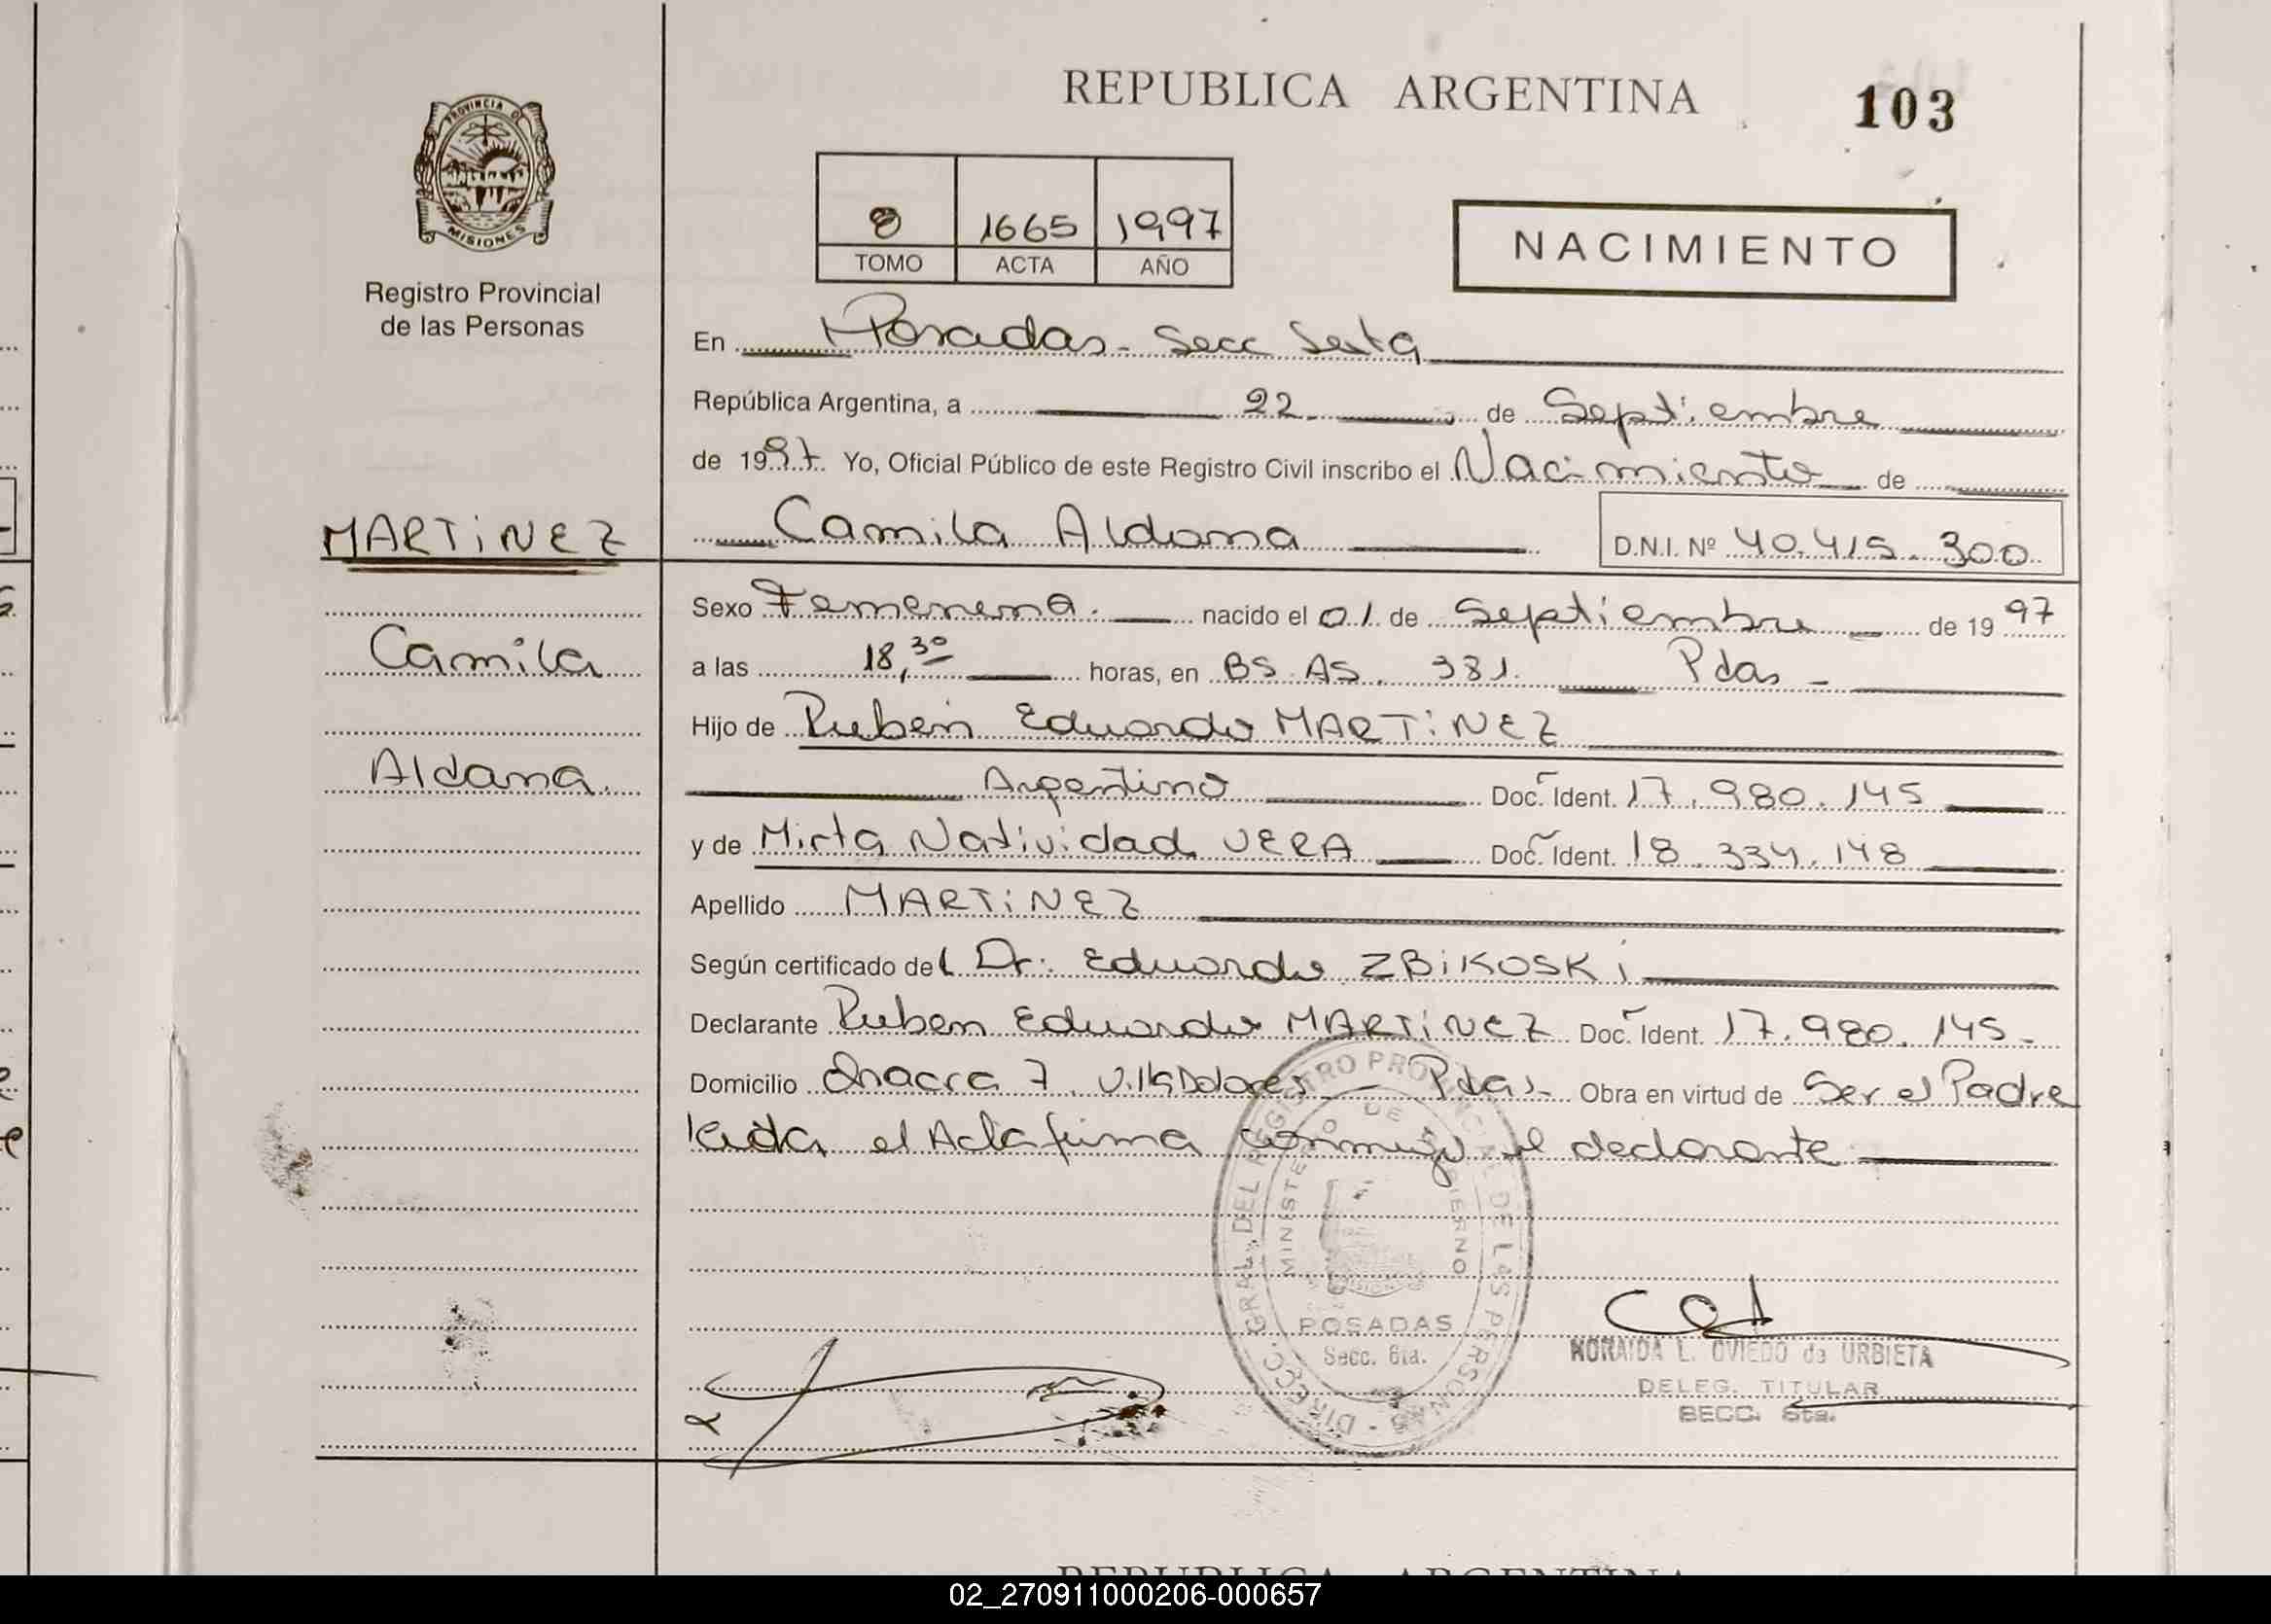 REPUBLICA ARGENTINA
103
PROVINCIA D
MISIONES
Registro Provincial
de las Personas
8 1665 1997
TOMO ACTA AÑO
NACIMIENTO
En Posadas - Secc Sexta
República Argentina, a 22 de Septiembre
de 1997. Yo, Oficial Público de este Registro Civil inscribo el Nacimiento de
MARTiNEZ
Camila Aldana D.N.I. Nº 40.415.300
Sexo Femenena. nacido el 01 de Septiembre de 1997
Camila
a las 18,30 horas, en BS. AS. 381. Pdas -
Hijo de Ruben Eduardo MARTiNEZ
Aldana.
Argentino Doc. Ident. 17.980.145
y de Mirta Natividad VERA Doc. Ident. 18.334.148
Apellido MARTiNEZ
Según certificado del Dr. Eduardo ZBiKOSKi
Declarante Ruben Eduardo MARTiNEZ Doc. Ident. 17.980.145-
Domicilio Chacra 7. Villa Dolores - Pdas- Obra en virtud de Ser el Padre
leida el Acta firma conmigo el declarante
DIRECC. GRAL. DEL REGISTRO PROVINCIAL DE LAS PERSONAS -
MINISTERIO DE GOBIERNO
POSADAS
Secc. 6ta.
NORAIDA L. OVIEDO de URBIETA
DELEG. TITULAR
SECC. 6ta.
REPUBLICA ARGENTINA
02_270911000206-000657